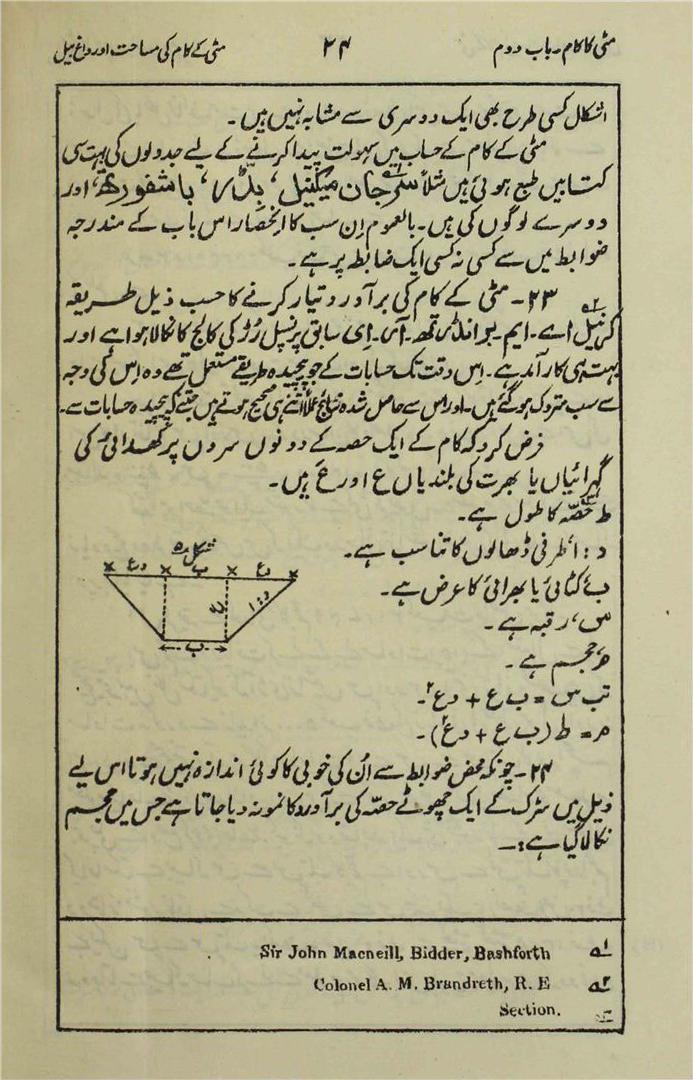 مٹی کا کام۔ باب دوم
۲۴
مٹی کے کام کی مساحت اور داغ بیل
اشکال کسی طرح بھی ایک دوسری سے مشابہ نہیں ہیں۔
مٹی کے کام کے حساب میں سہولت پیدا کرنے کے لیے جدولوں کی بہت سی
کتابیں طبع ہوئی ہیں مثلاً سر جان میکنیل، بڈر، باشفورتھ، اور
دوسرے لوگوں کی ہیں۔ بالعموم اِن سب کا انحصار اس باب کے مندرجہ
ضوابط میں سے کسی نہ کسی ایک ضابطہ پر ہے۔
۲۳۔ مٹی کے کام کی برآورد تیار کرنے کا حسب ذیل طریقہ
کرنیل اے۔ ایم۔ برانڈرتھ۔ آر۔ اِی سابق پرنسپل رڑکی کالج کا نکالا ہوا ہے اور
بہت ہی کار آمد ہے۔ اِس وقت تک حسابات کے جو پیچیدہ طریقے مستعمل تھے وہ اِس کی وجہ
سے سب متروک ہو گئے ہیں۔ اور اس سے حاصل شدہ نتائج عملاً اتنے ہی صحیح ہوتے ہیں جتنے کہ پیچیدہ حسابات سے۔
فرض کرو کہ کام کے ایک حصہ کے دونوں سروں پر کھدائی کی
گہرائیاں یا بھرت کی بلندیاں ع اور عَ ہیں۔
ط حصّہ کا طول ہے۔
د : ا طرفی ڈھالوں کا تناسب ہے۔
ب کٹائی یا بھرائی کا عرض ہے۔
س، رقبہ ہے۔
م، حجم ہے۔
تب س = ب ع + د ع۲۔
م = ط (ب ع + د ع۲)۔
شکل ۵
× دع × ب × دع ×
ع
د : ا
ب
۲۴۔ چونکہ محض ضوابط سے اُن کی خوبی کا کوئی اندازہ نہیں ہوتا اس لیے
ذیل میں سڑک کے ایک چھوٹے حصّہ کی برآورد کا نمونہ دیا جاتا ہے جس میں حجم
نکالا گیا ہے:۔
۱؎ Sir John Macneill, Bidder, Bashforth
۲؎ Colonel A. M. Brandreth, R. E
۳؎ Section.